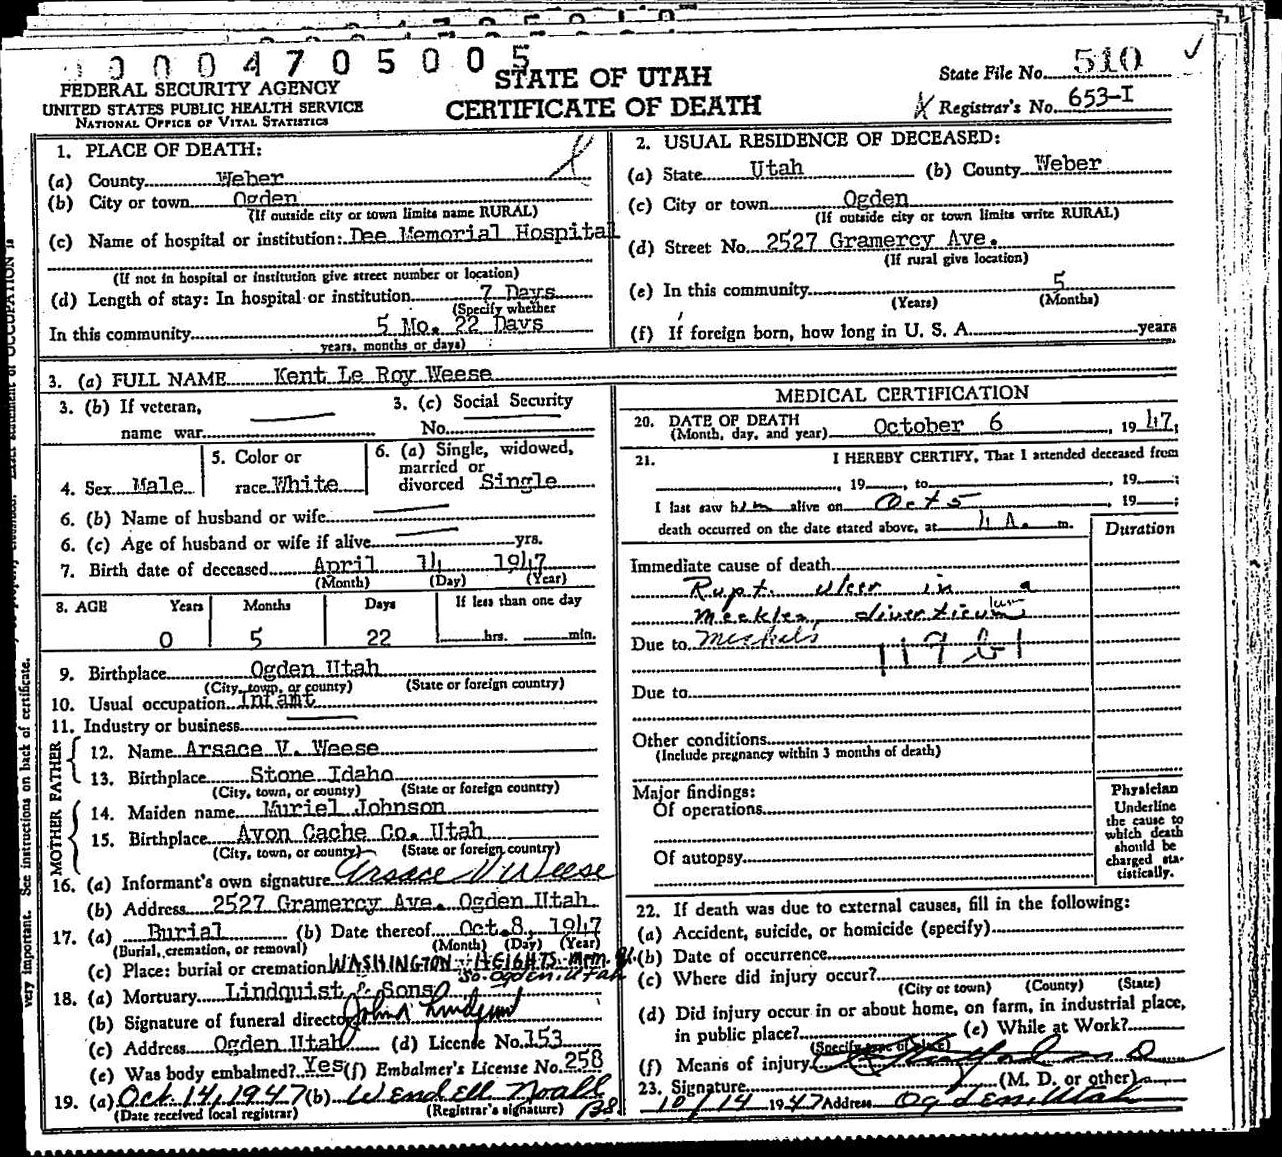 0 0 0 4 7 0 5 0 0 5
STATE OF UTAH
CERTIFICATE OF DEATH
FEDERAL SECURITY AGENCY
UNITED STATES PUBLIC HEALTH SERVICE
NATIONAL OFFICE OF VITAL STATISTICS
State File No. 510
Registrar's No. 653-I
1. PLACE OF DEATH:
(a) County Weber
(b) City or town Ogden
(If outside city or town limits name RURAL)
(c) Name of hospital or institution: Dee Memorial Hospital
(If not in hospital or institution give street number or location)
(d) Length of stay: In hospital or institution 7 Days
(Specify whether
In this community 5 Mo. 22 Days
years, months or days)
2. USUAL RESIDENCE OF DECEASED:
(a) State Utah (b) County Weber
(c) City or town Ogden
(If outside city or town limits write RURAL)
(d) Street No. 2527 Gramercy Ave.
(If rural give location)
(e) In this community 5
(Years) (Months)
(f) If foreign born, how long in U. S. A. years
3. (a) FULL NAME Kent Le Roy Weese
3. (b) If veteran,
name war
3. (c) Social Security
No.
4. Sex Male
5. Color or
race White
6. (a) Single, widowed,
married or
divorced Single
6. (b) Name of husband or wife
6. (c) Age of husband or wife if alive yrs.
7. Birth date of deceased April 14 1947
(Month) (Day) (Year)
8. AGE Years Months Days If less than one day
0 5 22 hrs. min.
9. Birthplace Ogden Utah
(City, town, or county) (State or foreign country)
10. Usual occupation Infant
11. Industry or business
FATHER
12. Name Arsace V. Weese
13. Birthplace Stone Idaho
(City, town, or county) (State or foreign country)
MOTHER
14. Maiden name Muriel Johnson
15. Birthplace Avon Cache Co. Utah
(City, town, or county) (State or foreign country)
16. (a) Informant's own signature Arsace V Weese
(b) Address 2527 Gramercy Ave. Ogden Utah
17. (a) Burial (b) Date thereof Oct. 8, 1947
(Burial, cremation, or removal) (Month) (Day) (Year)
(c) Place: burial or cremation WASHINGTON HEIGHTS Mem.
So. Ogden, Utah
18. (a) Mortuary Lindquist & Sons
(b) Signature of funeral director John A Lindquist
(c) Address Ogden Utah (d) License No. 153
(e) Was body embalmed? Yes (f) Embalmer's License No. 258
19. (a) Oct. 14, 1947 (b) Wendell Noall
(Date received local registrar) (Registrar's signature)
MEDICAL CERTIFICATION
20. DATE OF DEATH
(Month, day, and year) October 6, 1947;
21. I HEREBY CERTIFY, That I attended deceased from
, 19 , to , 19 ;
I last saw him alive on Oct 5 19 ;
death occurred on the date stated above, at 4 A. m.
Duration
Immediate cause of death
Rupt. ulcer in a
Meckles diverticulum
Due to Meckels
Due to
Other conditions
(Include pregnancy within 3 months of death)
Major findings:
Of operations
Of autopsy
Physician
Underline
the cause to
which death
should be
charged sta-
tistically.
22. If death was due to external causes, fill in the following:
(a) Accident, suicide, or homicide (specify)
(b) Date of occurrence
(c) Where did injury occur?
(City or town) (County) (State)
(d) Did injury occur in or about home, on farm, in industrial place,
in public place? (e) While at Work?
(Specify type of place)
(f) Means of injury
23. Signature (M. D. or other)
10/14 1947 Address Ogden, Utah
very important. See instructions on back of certificate.